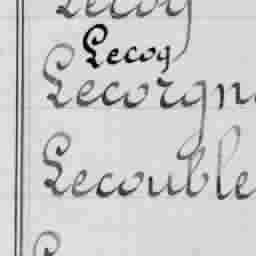 Lecoq
Lecoq
Lecorgn
Lecouble